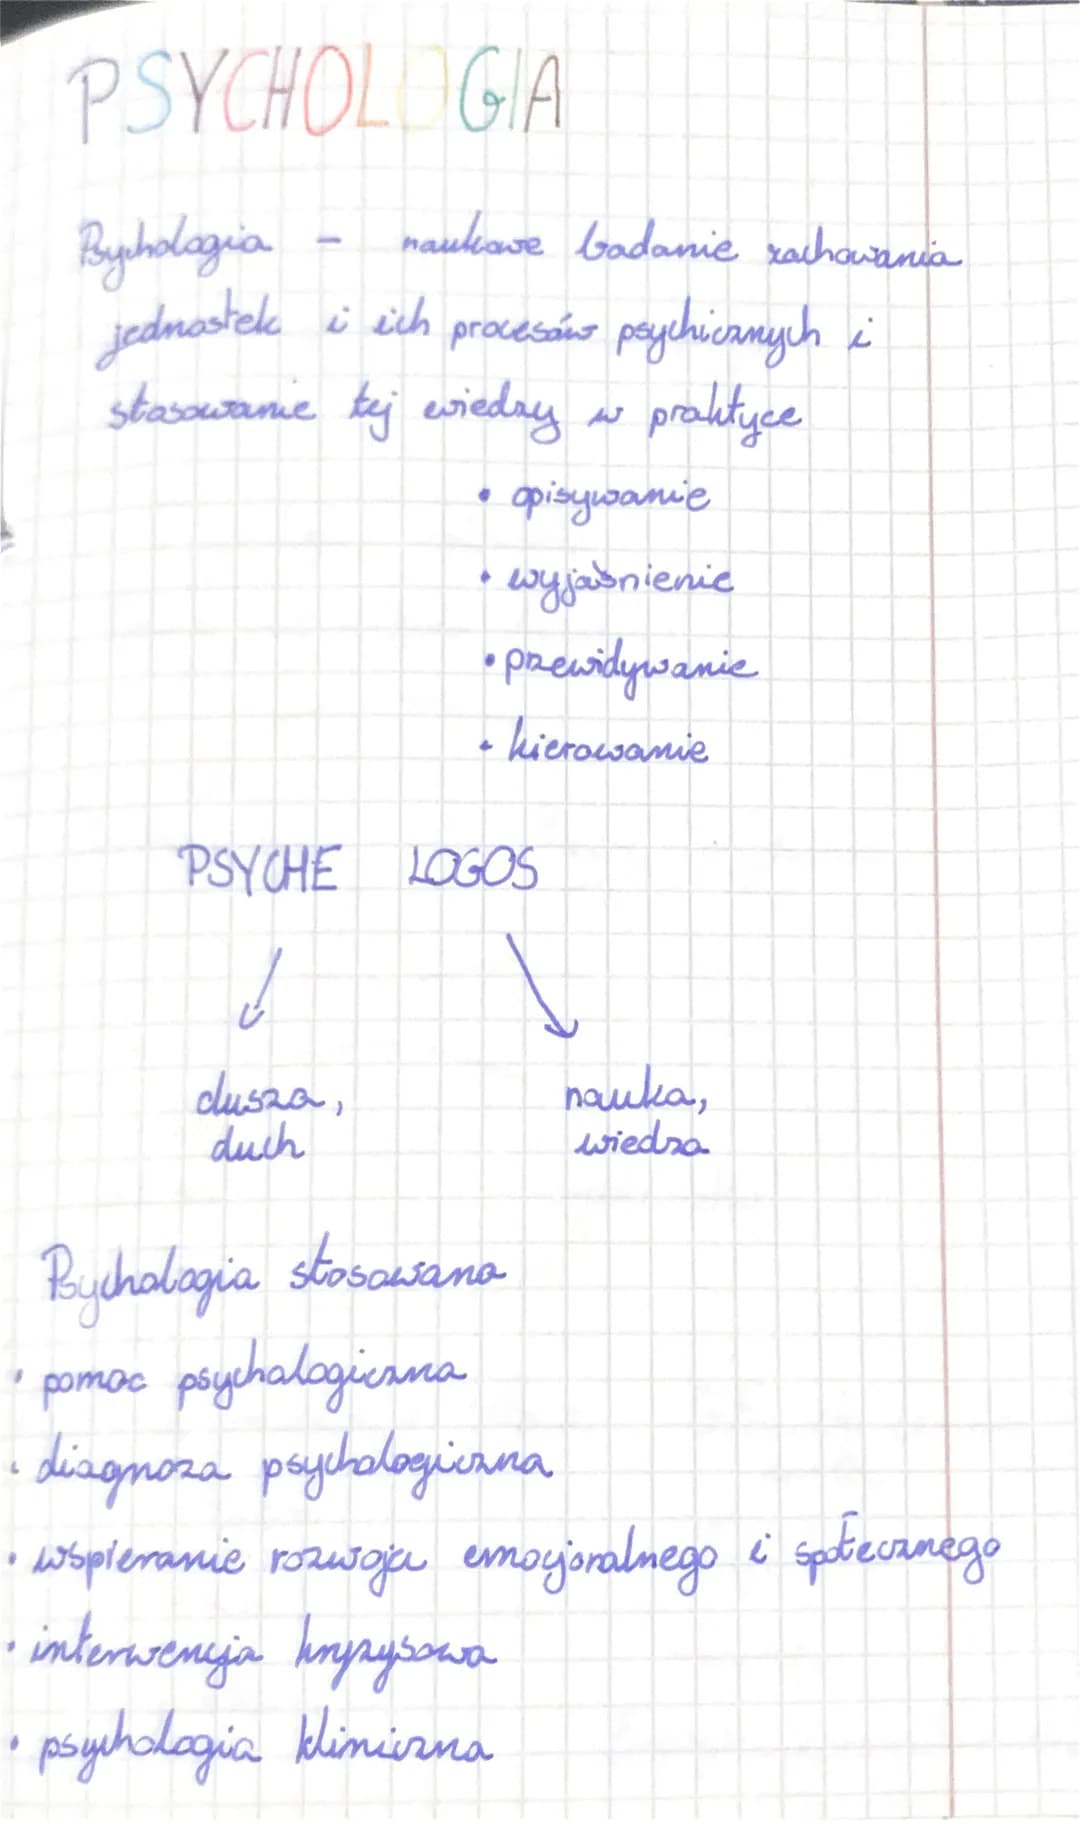 PSYCHOLOGIA
Psychologia - naukowe badanie zachowania
jednostek i ich procesów psychicznych i
stosowanie tej wiedzy w praktyce
• opisywanie
• wyjaśnienie
• przewidywanie
• kierowanie
PSYCHE LOGOS
dusza, nauka,
duch wiedza
Psychologia stosowana
• pomoc psychologiczna
• diagnoza psychologiczna
• wspieranie rozwoju emocjonalnego i społecznego
• interwencja kryzysowa
• psychologia kliniczna